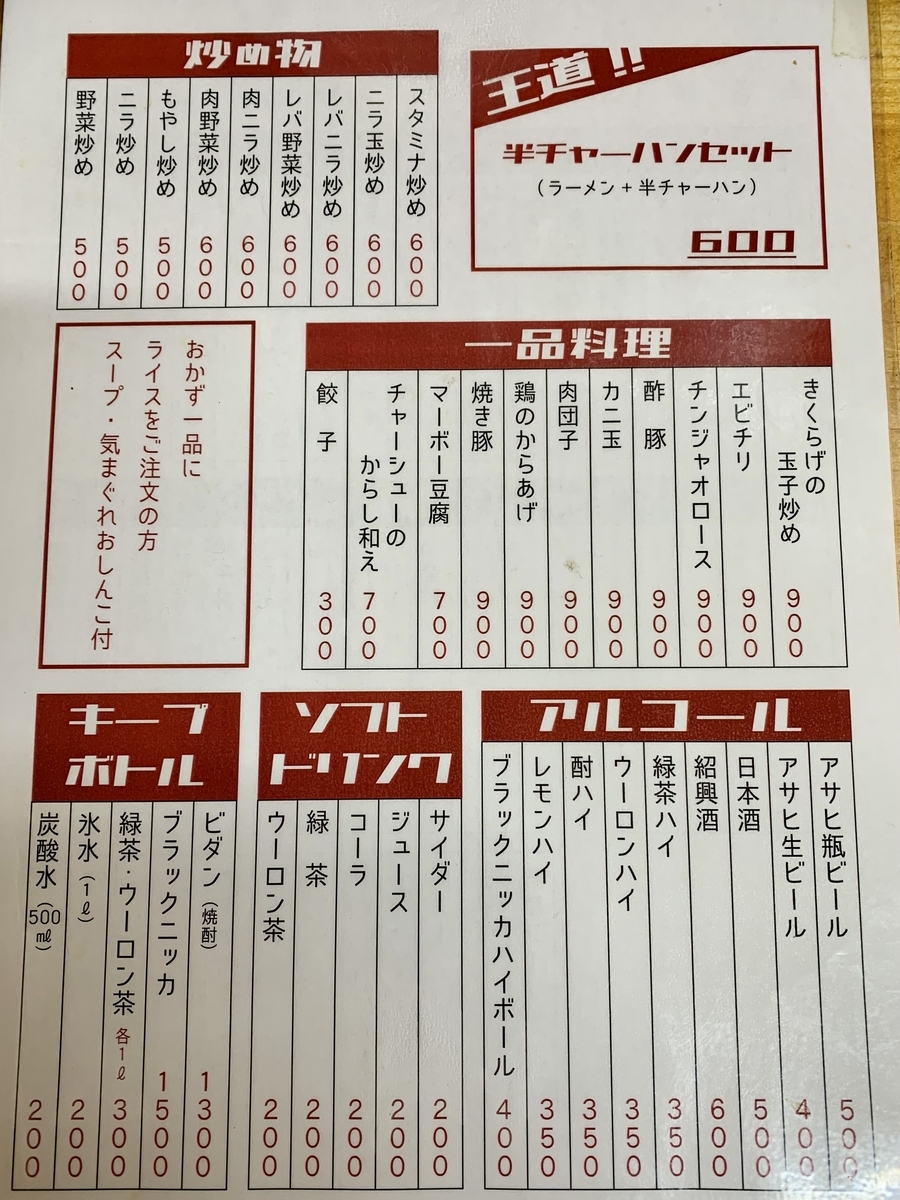 炒め物
スタミナ炒め 600
ニラ玉炒め 600
レバニラ炒め 600
レバ野菜炒め 600
肉ニラ炒め 600
肉野菜炒め 600
もやし炒め 500
ニラ炒め 500
野菜炒め 500
王道!!
半チャーハンセット
(ラーメン+半チャーハン)
600
おかず一品に
ライスをご注文の方
スープ・気まぐれおしんこ付
一品料理
きくらげの
玉子炒め 900
エビチリ 900
チンジャオロース 900
酢豚 900
カニ玉 900
肉団子 900
鶏のからあげ 900
焼き豚 900
マーボー豆腐 700
チャーシューの
からし和え 700
餃子 300
キープ
ボトル
ビダン(焼酎) 1300
ブラックニッカ 1500
緑茶・ウーロン茶 各1ℓ 300
氷水(1ℓ) 200
炭酸水(500㎖) 200
ソフト
ドリンク
サイダー 200
ジュース 200
コーラ 200
緑茶 200
ウーロン茶 200
アルコール
アサヒ瓶ビール 500
アサヒ生ビール 400
日本酒 500
紹興酒 600
緑茶ハイ 350
ウーロンハイ 350
酎ハイ 350
レモンハイ 350
ブラックニッカハイボール 400